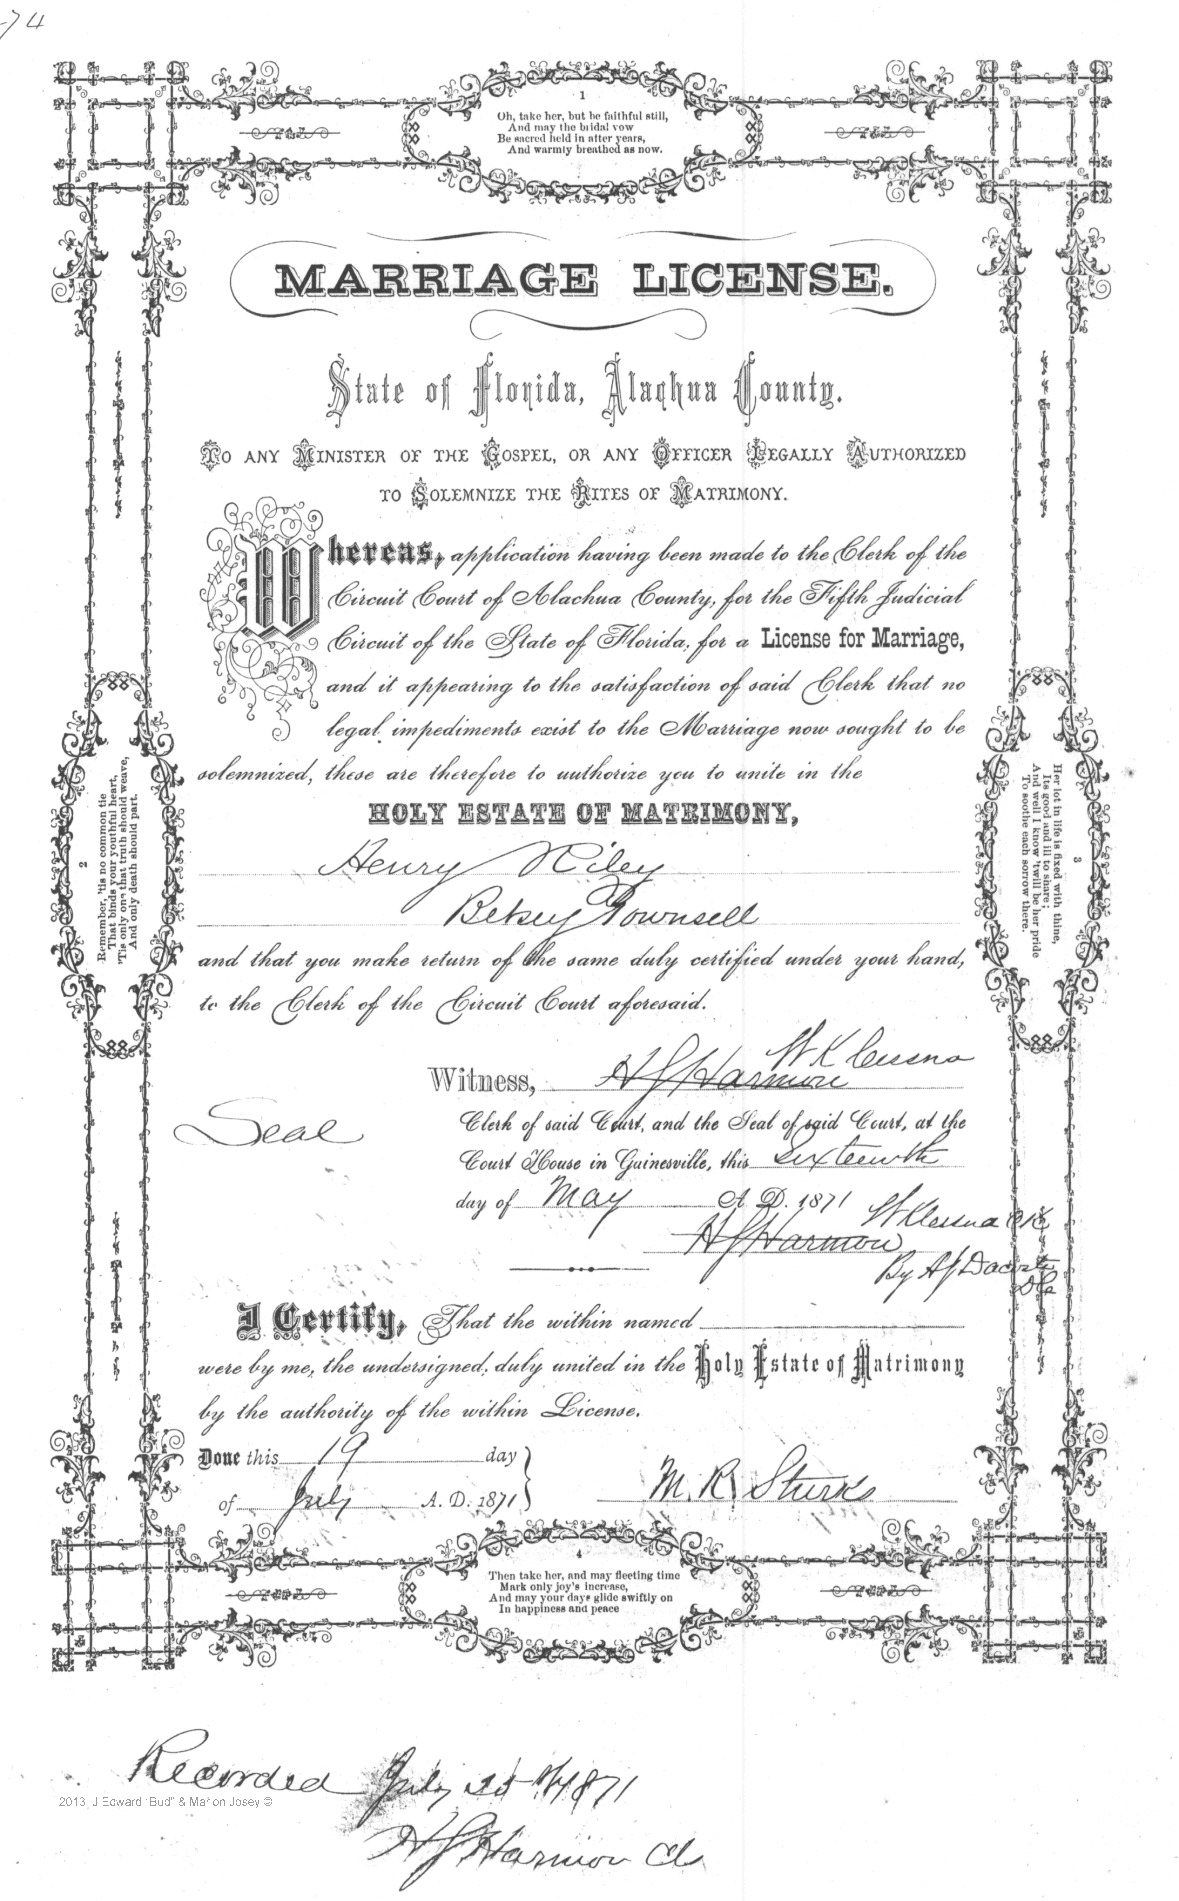 -74
1
Oh, take her, but be faithful still,
And may the bridal vow
Be sacred held in after years,
And warmly breathed as now.
MARRIAGE LICENSE.
State of Florida, Alachua County.
TO ANY MINISTER OF THE GOSPEL, OR ANY OFFICER LEGALLY AUTHORIZED
TO SOLEMNIZE THE RITES OF MATRIMONY.
Whereas, application having been made to the Clerk of the
Circuit Court of Alachua County, for the Fifth Judicial
Circuit of the State of Florida, for a License for Marriage,
and it appearing to the satisfaction of said Clerk that no
legal impediments exist to the Marriage now sought to be
solemnized, these are therefore to authorize you to unite in the
HOLY ESTATE OF MATRIMONY,
Henry Riley
Betsey Townsell
and that you make return of the same duly certified under your hand,
to the Clerk of the Circuit Court aforesaid.
W K Cessna
Witness, H J Harmon
Seal
Clerk of said Court, and the Seal of said Court, at the
Court House in Gainesville, this Sixteenth
day of May A. D. 1871
W K Cessna Clk
H J Harmon
By A J Dacosta
DC
I Certify, That the within named
were by me, the undersigned, duly united in the Holy Estate of Matrimony
by the authority of the within License.
Done this 19 day
of July A. D. 1871
M. R. Sturks
2
Remember, 'tis no common tie
That binds your youthful heart,
'Tis only one that truth should weave,
And only death should part.
3
Her lot in life is fixed with thine,
Its good and ill to share;
And well I know 'twill be her pride
To soothe each sorrow there.
4
Then take her, and may fleeting time
Mark only joy's increase,
And may your days glide swiftly on
In happiness and peace
Recorded July 1871
2013 J Edward "Bud" & Marion Josey ©
H J Harmon Clk